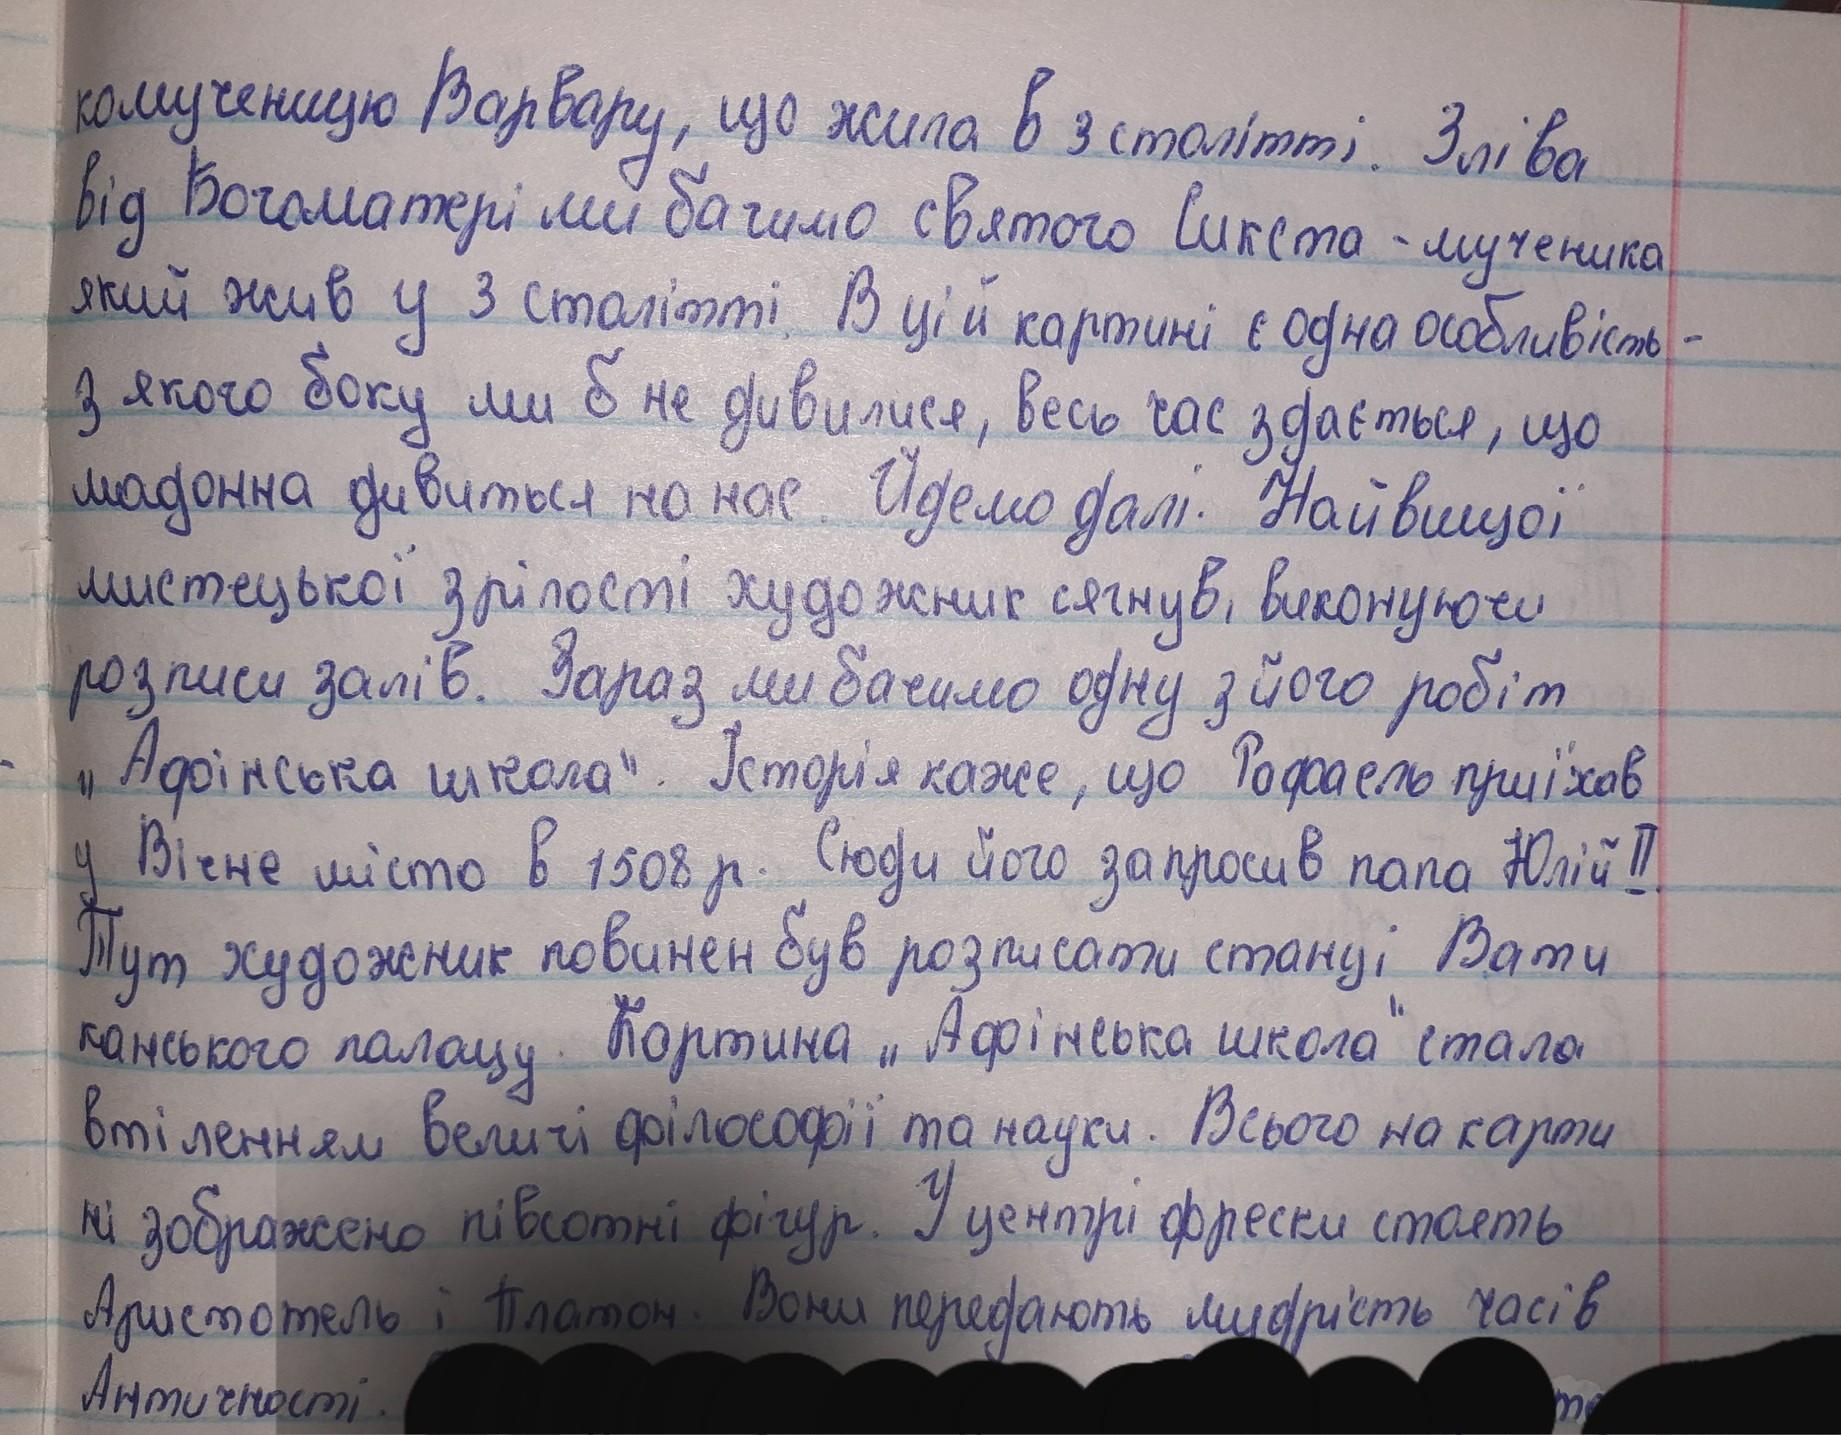 комученицю Варвару, що жила в 3 столітті. Зліва
від Богоматері ми бачимо святого Сикста - мученика
який жив у 3 столітті. В цій картині є одна особливість -
з якого боку ми б не дивилися, весь час здається, що
мадонна дивиться на нас. Йдемо далі. Найвищої
мистецької зрілості художник сягнув, виконуючи
розписи залів. Зараз ми бачимо одну з його робіт
„Афінська школа". Історія каже, що Рафаель приїхав
у Вічне місто в 1508 р. Сюди його запросив папа Юлій II.
Тут художник повинен був розписати станці Вати
канського палацу. Картина „Афінська школа" стала
втіленням величі філософії та науки. Всього на карти
ні зображено півсотні фігур. У центрі фрески стоять
Аристотель і Платон. Вони передають мудрість часів
Античності.